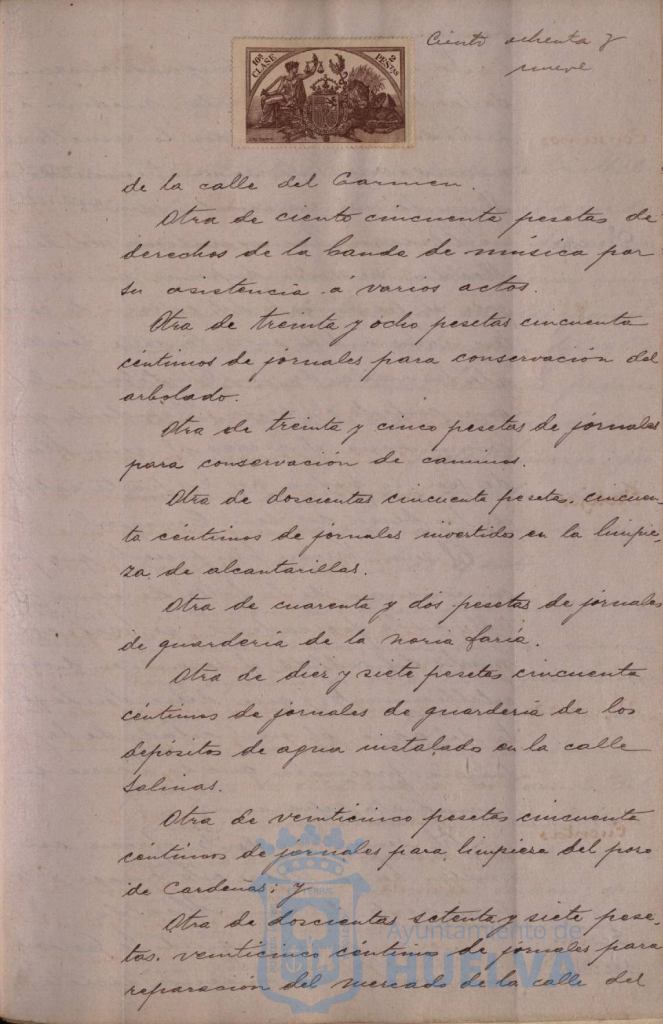 Ciento ochenta y
nueve
10ª CLASE
2 PESETAS
de la calle del Carmen.
Otra de ciento cincuenta pesetas de
derechos de la banda de música por
su asistencia á varios actos.
Otra de treinta y ocho pesetas cincuenta
céntimos de jornales para conservación del
arbolado.
Otra de treinta y cinco pesetas de jornales
para conservación de caminos.
Otra de doscientas cincuenta pesetas, cincuen-
ta céntimos de jornales invertidos en la limpie-
za de alcantarillas.
Otra de cuarenta y dos pesetas de jornales
de guardería de la noria faría.
Otra de diez y siete pesetas cincuenta
céntimos de jornales de guardería de los
depósitos de agua instalado en la calle
Salinas.
Otra de veinticinco pesetas cincuenta
céntimos de jornales para limpieza del pozo
de Cardeñas; y
Otra de doscientas setenta y siete pese-
tas, veinticinco céntimos de jornales para
reparación del mercado de la calle del
Ayuntamiento de
HUELVA